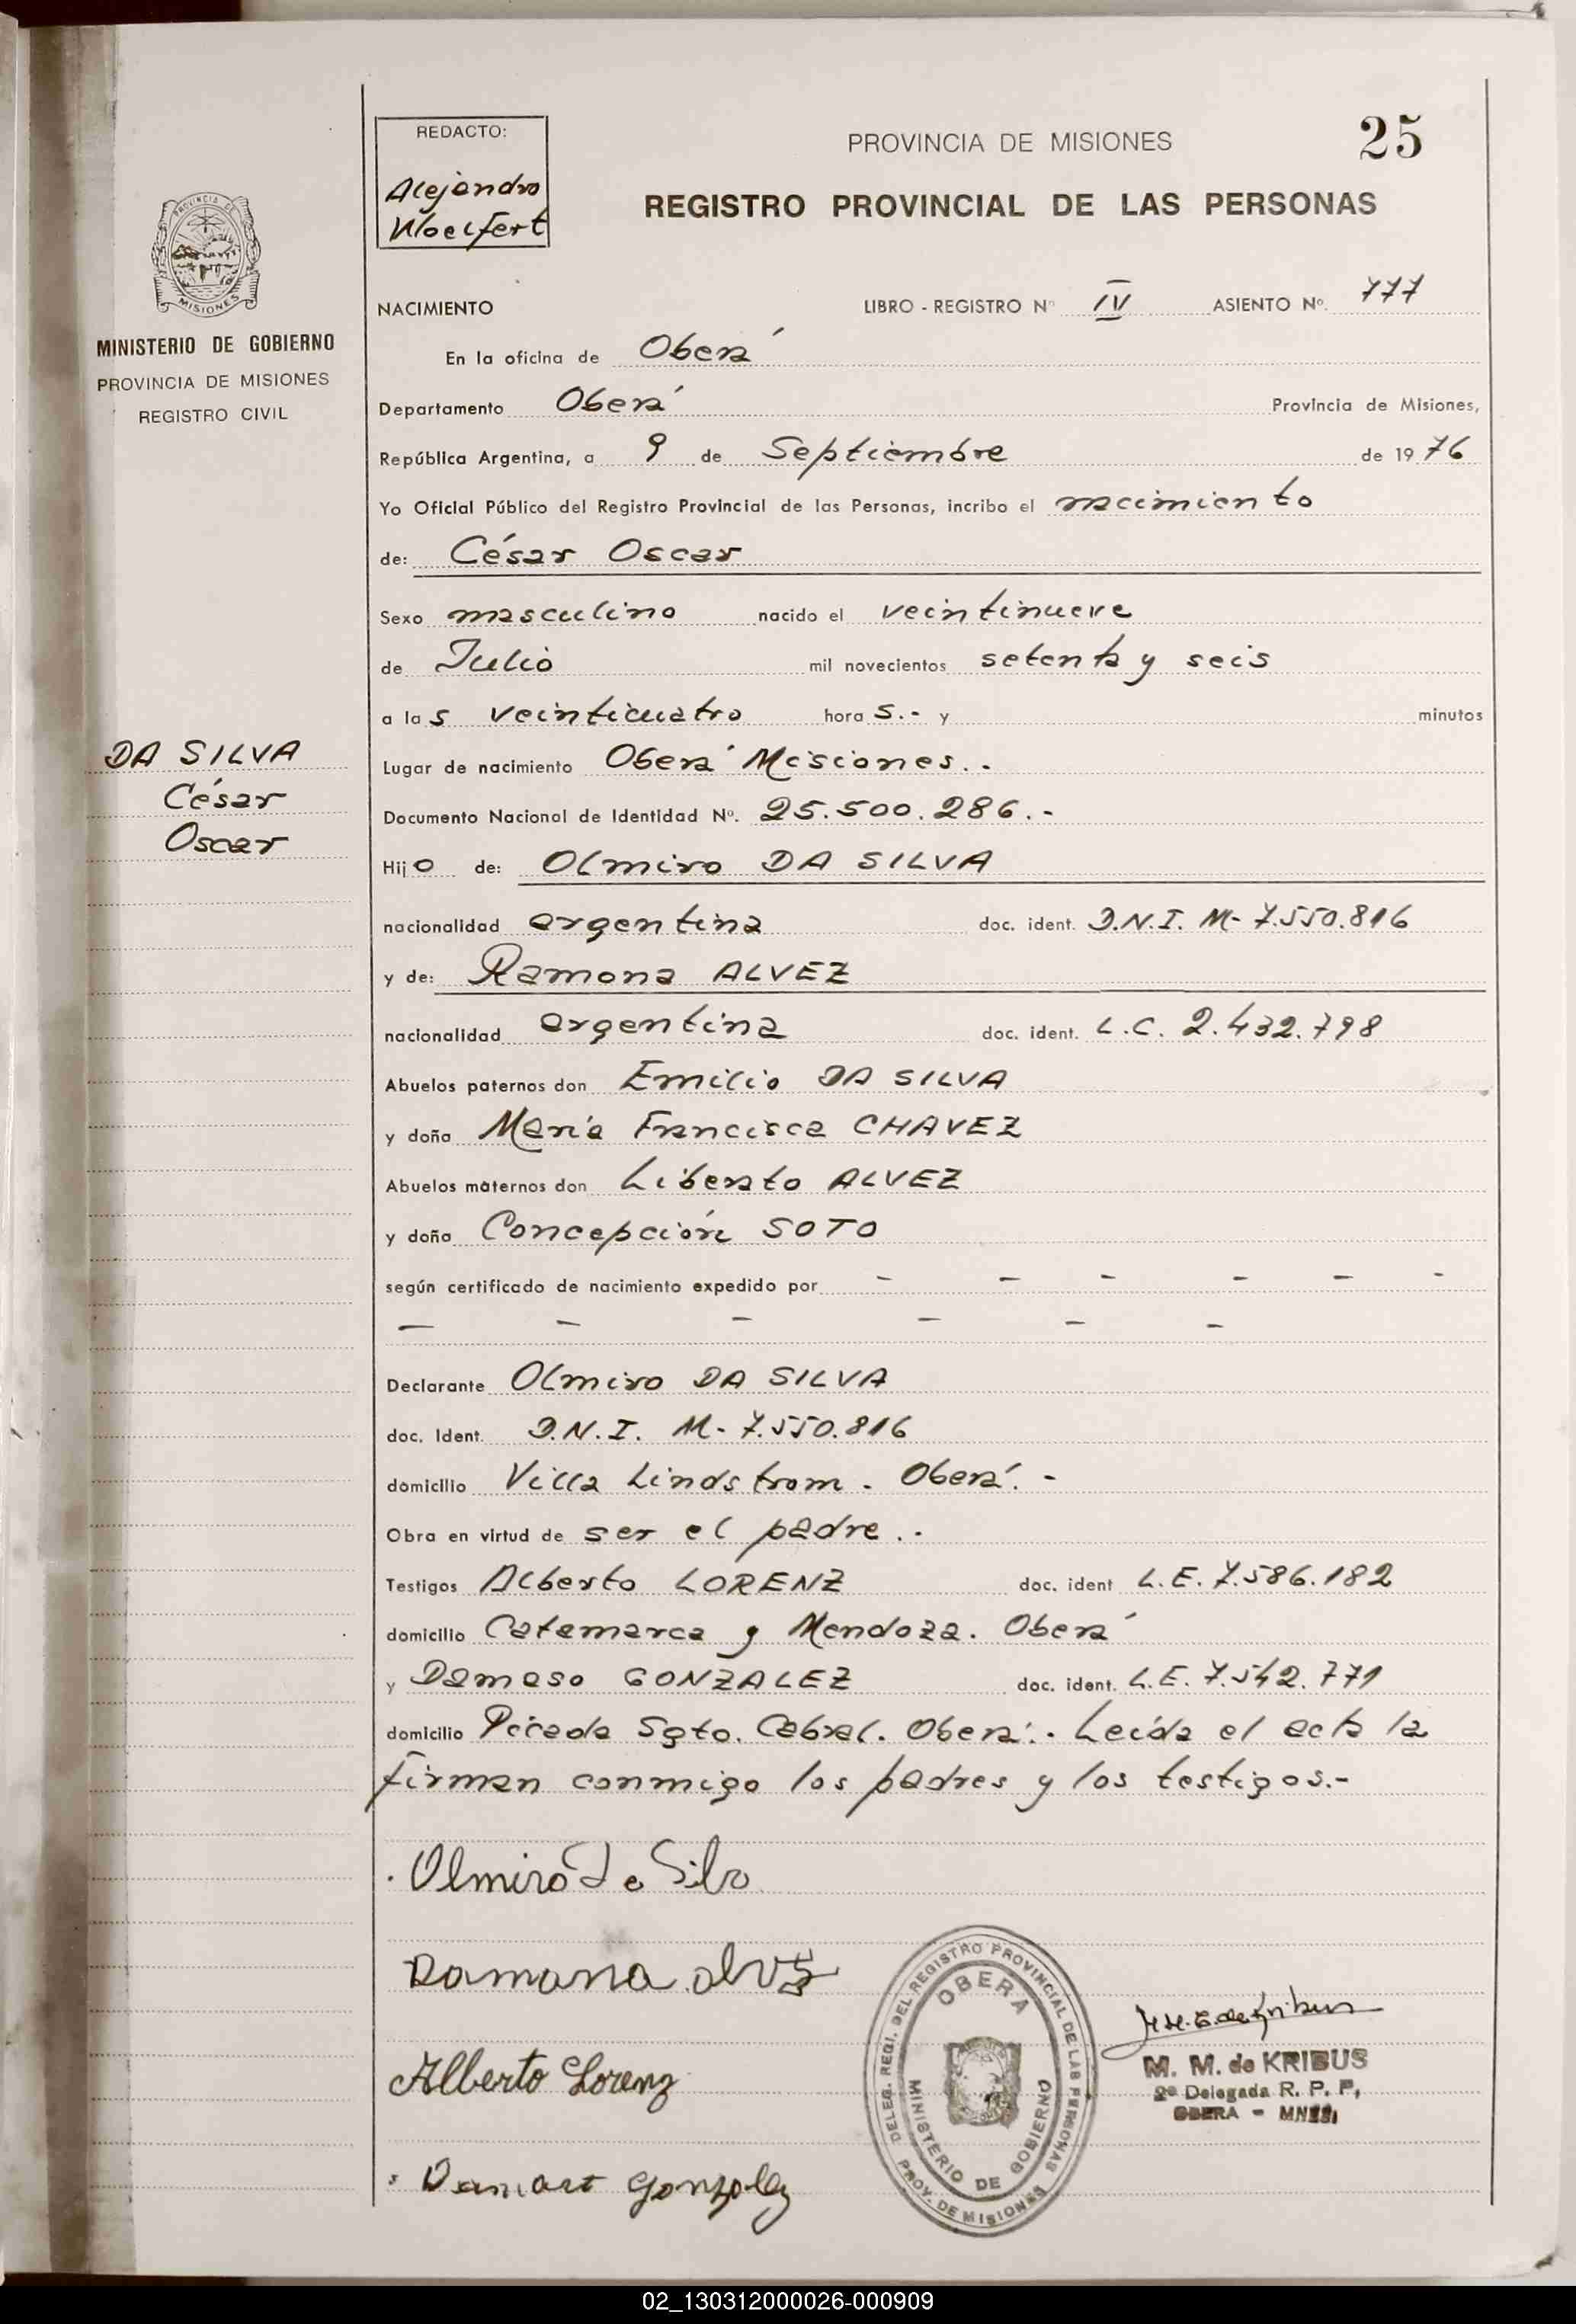 REDACTO:
Alejandro
Woelfert
PROVINCIA DE MISIONES
25
REGISTRO PROVINCIAL DE LAS PERSONAS
PROVINCIA DE
MISIONES
MINISTERIO DE GOBIERNO
PROVINCIA DE MISIONES
REGISTRO CIVIL
NACIMIENTO LIBRO - REGISTRO Nº IV ASIENTO Nº. 777
En la oficina de Oberá
Departamento Oberá Provincia de Misiones,
República Argentina, a 9 de Septiembre de 1976
Yo Oficial Público del Registro Provincial de las Personas, incribo el nacimiento
de: César Oscar
Sexo masculino nacido el veintinueve
de Julio mil novecientos setenta y seis
a las veinticuatro horas.- y minutos
DA SILVA
César
Oscar
Lugar de nacimiento Oberá Misiones.-
Documento Nacional de Identidad Nº. 25.500.286.-
Hijo de: Olmiro DA SILVA
nacionalidad argentina doc. ident. D.N.I. M- 7.550.816
y de: Ramona ALVEZ
nacionalidad argentina doc. ident. L.C. 2.432.798
Abuelos paternos don Emilio DA SILVA
y doña María Francisca CHAVEZ
Abuelos maternos don Liberato ALVEZ
y doña Concepción SOTO
según certificado de nacimiento expedido por - - - - - -
- - - - - -
Declarante Olmiro DA SILVA
doc. Ident. D.N.I. M- 7.550.816
domicilio Villa Lindstrom. Oberá.-
Obra en virtud de ser el padre.-
Testigos Alberto LORENZ doc. ident L.E. 7.586.182
domicilio Catamarca y Mendoza. Oberá
y Damaso GONZALEZ doc. ident. L.E. 7.542.771
domicilio Picada Sgto. Cabral. Oberá.- Leída el acta la
firman conmigo los padres y los testigos.-
Olmiro Da Silva
Ramona alvez
Alberto Lorenz
Gonzalez
DELEG. REGI. DEL REGISTRO PROVINCIAL DE LAS PERSONAS
OBERA
MINISTERIO DE GOBIERNO
PROV. DE MISIONES
M. M. de KRIBUS
2ª Delegada R. P. P.
OBERA - MNES.
02_130312000026-000909